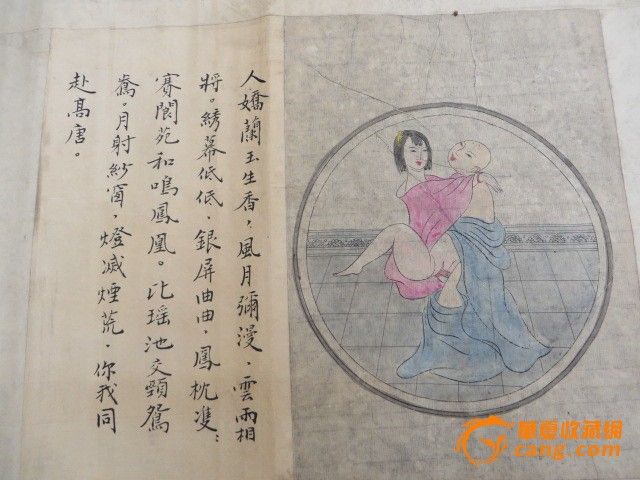 人嬌蘭玉生香，風月彌漫、雲雨相
將。綉幕低低、銀屏曲曲，鳳枕雙：
賽閬苑和鳴鳳凰。比瑶池交頸鴛
鴦。月射紗窗，燈滅煙荒、你我同
赴高唐。
華夏收藏網
cang.com